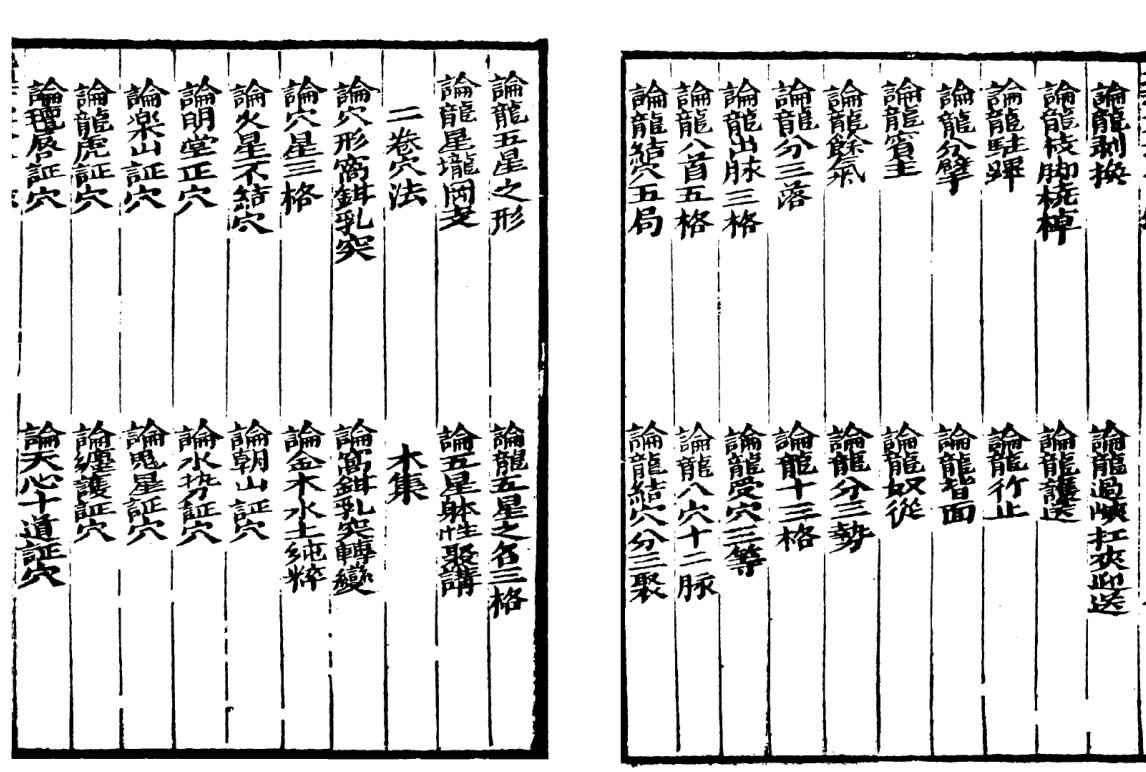 論龍剥換　論龍過峽扛夾迎送
論龍枝脚橈棹　論龍護送
論龍駐蹕　論龍行止
論龍分擘　論龍背面
論龍賓主　論龍奴從
論龍餘氣　論龍分三勢
論龍分三落　論龍十三格
論龍出脉三格　論龍受穴三等
論龍八首五格　論龍八穴十二脉
論龍結穴五局　論龍結穴分三聚
論龍五星之形　論龍五星之名三格
論龍星壠岡支　論五星躰性聚講
二卷穴法　木集
論穴形窩鉗乳突　論窩鉗乳突轉變
論穴星三格　論金木水土純粹
論火星不結穴　論朝山証穴
論明堂正穴　論水势証穴
論楽山証穴　論鬼星証穴
論龍虎証穴　論纏護証穴
論氊唇証穴　論天心十道証穴